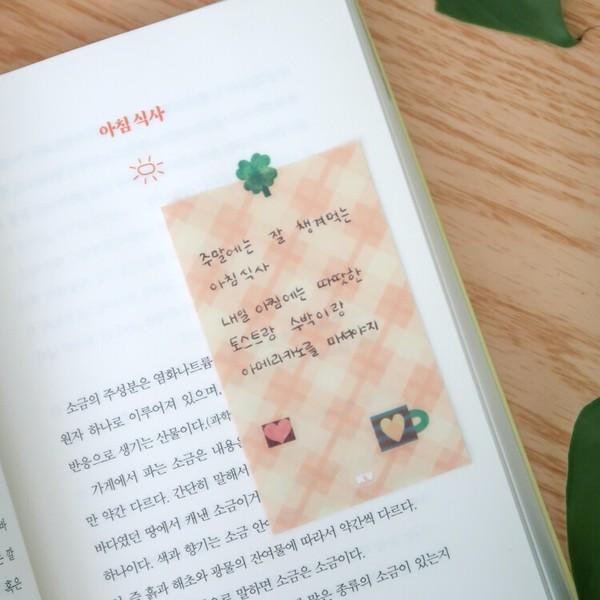 아침 식사
주말에는 잘 챙겨먹는
아침식사
내일 아침에는 따땃한
토스트랑 수박이랑
아메리카노를 마셔야지
소금의 주성분은 염화나트륨
원자 하나로 이루어져 있으며,
반응으로 생기는 산물이다.(과학
가게에서 파는 소금은 내용
만 약간 다르다. 간단히 말해서
바다였던 땅에서 캐낸 소금이거
하나이다. 색과 향기는 소금 안에
즉 흙과 해초와 광물의 잔여물에 따라서 약간씩 다르다.
으로 말하면 소금은 소금이다.
많은 종류의 소금이 있는지